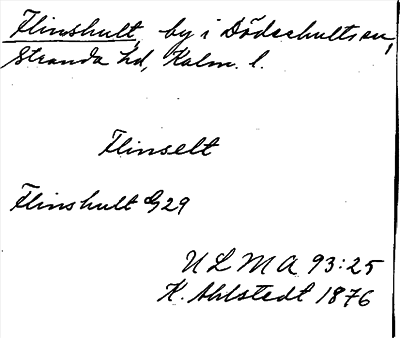 Flinshult, by i Dödschults sn,
Stranda hd, Kalm. l.
Flinselt
Flinshult G29
ULMA 93:25
K. Ahlstedt 1876